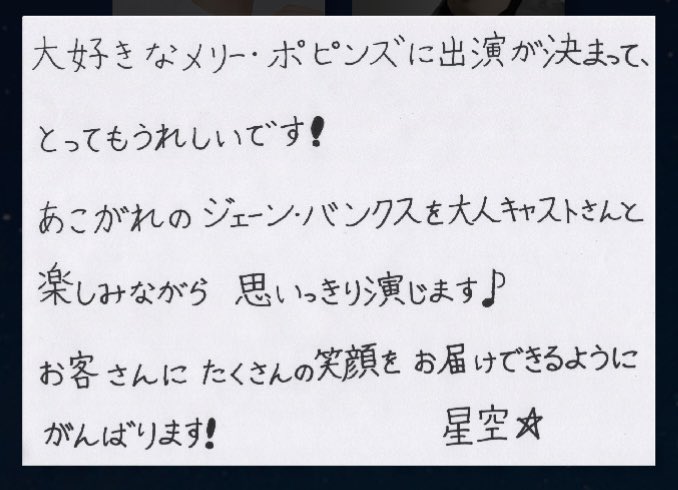 大好きなメリー・ポピンズに出演が決まって、
とってもうれしいです!
あこがれのジェーン・バンクスを大人キャストさんと
楽しみながら 思いっきり演じます♪
お客さんに たくさんの笑顔を お届けできるように
がんばります! 星空☆